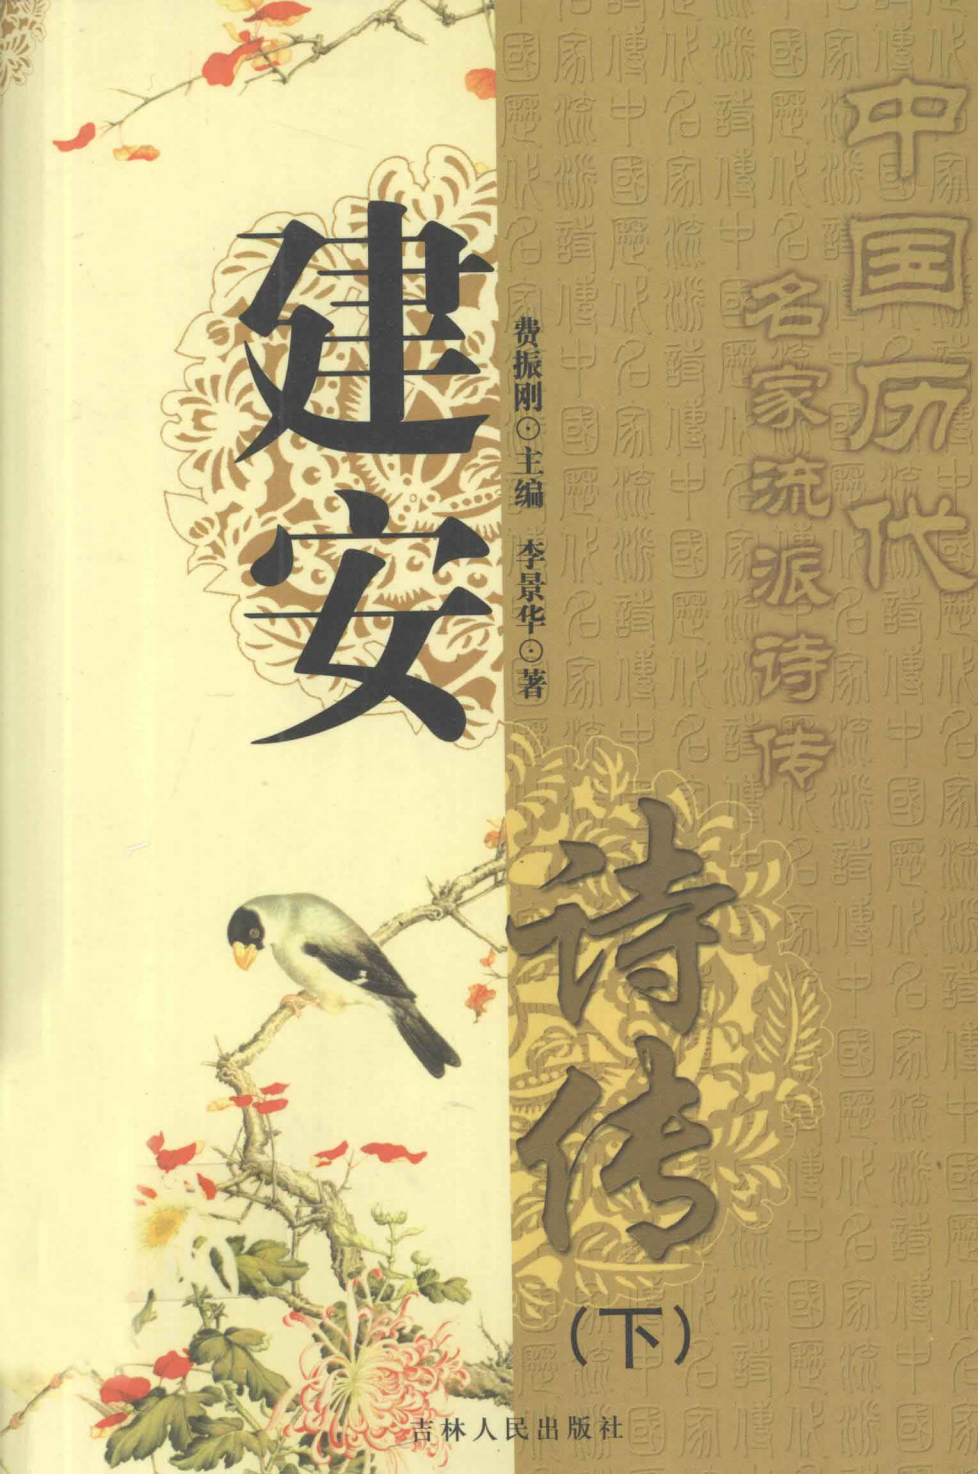 中国历代
名家流派诗传
建安
费振刚⊙主编 李景华⊙著
诗传
（下）
吉林人民出版社